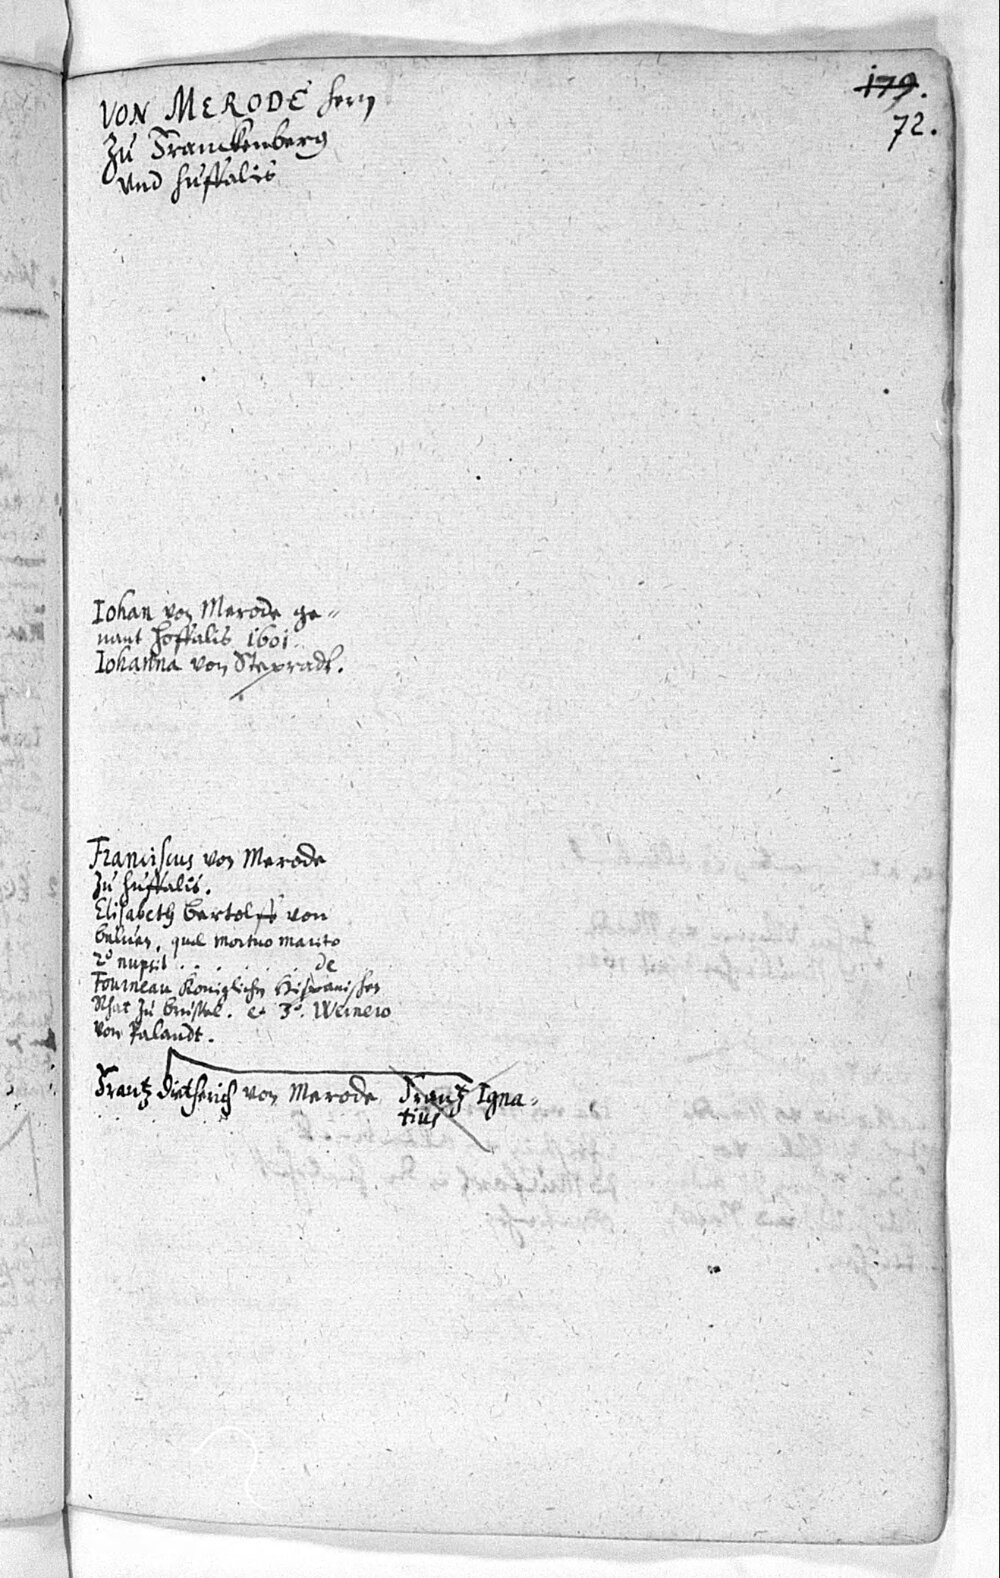 179.
72.
VON MERODE hern
Zu Franckenberg
vnd huffalis
Iohan von Merode ge=
nant hoffalis 1601.
Iohanna von Stepradt.
Franciscus von Merode
Zu huffalis.
Elisabeth Bertolff von
quae mortuo marito
2º nupsit . . . . . . . de
Fourneau Königlicher Hispanischer
Rhat Zu Brussel. et 3º. Weinero
von Palandt.
Frantz Dietherich von Merode Frantz Igna=
tius